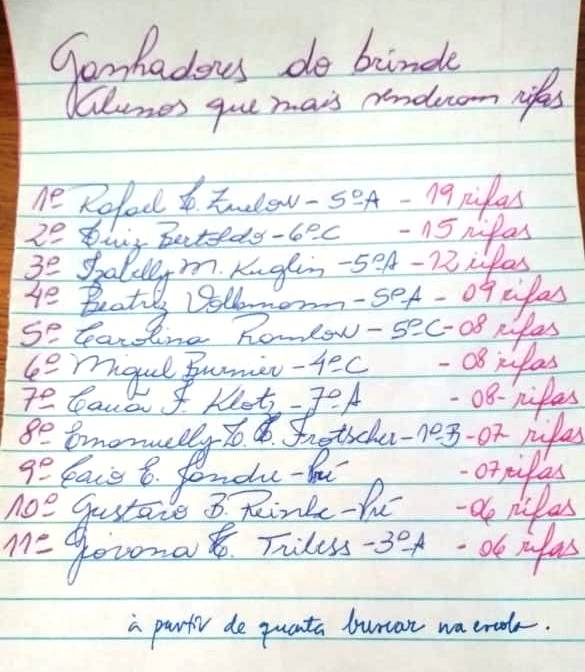 Ganhadores do brinde
Alunos que mais venderam rifas
1º Rafael E. Zuelow - 5ºA - 19 rifas
2º Luiz Bertoldo - 6ºC - 15 rifas
3º Isabelly M. Kuglin - 5ºA - 12 rifas
4º Beatriz Volkmann - 5ºA - 09 rifas
5º Carolina Ramlow - 5ºC - 08 rifas
6º Miguel Burnier - 4ºC - 08 rifas
7º Cauã F. Klotz - 7ºA - 08 - rifas
8º Emanuelly Frotscher - 1ºB - 07 rifas
9º Caio E. - Pré - 07 rifas
10º Gustavo B. Reinke - Pré - 06 rifas
11º Giovana Tribess - 3ºA - 06 rifas
à partir de quarta buscar na escola.